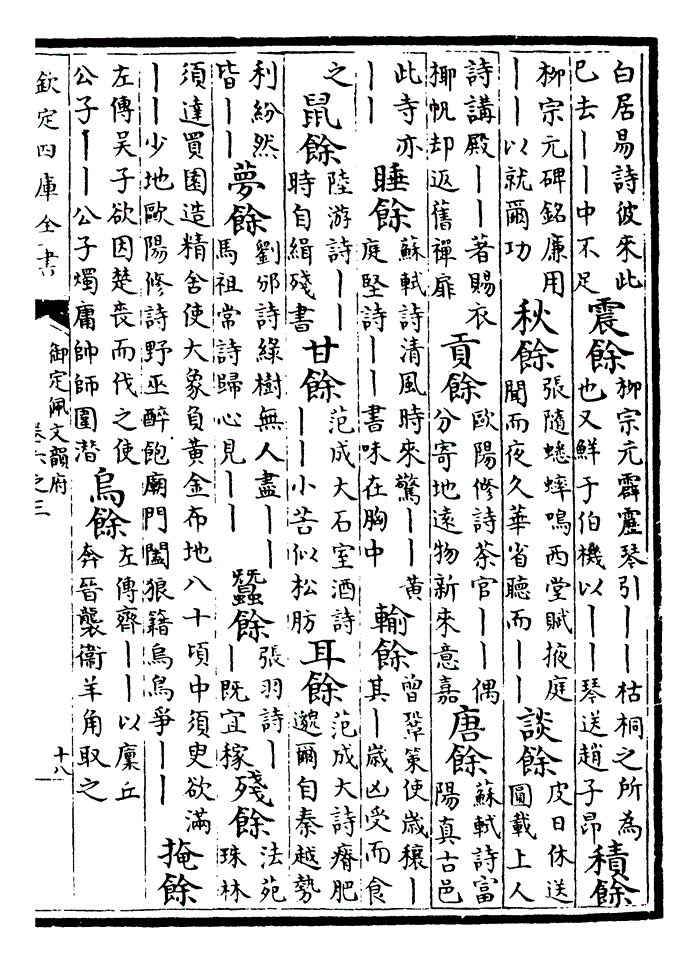 白居易詩彼來此
已去――中不足
震餘
柳宗元霹靂琴引――枯桐之所為
也又鮮于伯機以――琴送趙子昂
積餘
柳宗元碑銘廉用
――以就爾功
秋餘
張隨蟋蟀鳴西堂賦掖庭
聞而夜久華省聽而――
談餘
皮日休送
圓載上人
詩講殿――著賜衣
椰帆却返舊禪扉
貢餘
歐陽修詩茶官――偶
分寄地遠物新來意嘉
唐餘
蘇軾詩富
陽真古邑
此寺亦
――
睡餘
蘇軾詩清風時來驚――黃
庭堅詩――書味在胸中
輸餘
曾鞏策使歲穰―
其―歲凶受而食
之
鼠餘
陸游詩――
時自緝殘書
甘餘
范成大石室酒詩
――小苦似松肪
耳餘
范成大詩瘠肥
邈爾自秦越勢
利紛然
皆――
夢餘
劉邠詩綠樹無人盡――
馬祖常詩歸心見――
蠶餘
張羽詩―
―既宜稼
殘餘
法苑
珠林
須達買園造精舍使大象負黃金布地八十頃中須臾欲滿
――少地歐陽修詩野巫醉飽廟門闔狼籍烏烏爭――
掩餘
左傳吳子欲因楚喪而伐之使
公子――公子燭庸帥師圍潛
烏餘
左傳齊――以廩丘
奔晉襲衛羊角取之
欽定四庫全書
御定佩文韻府
卷六之三
十八